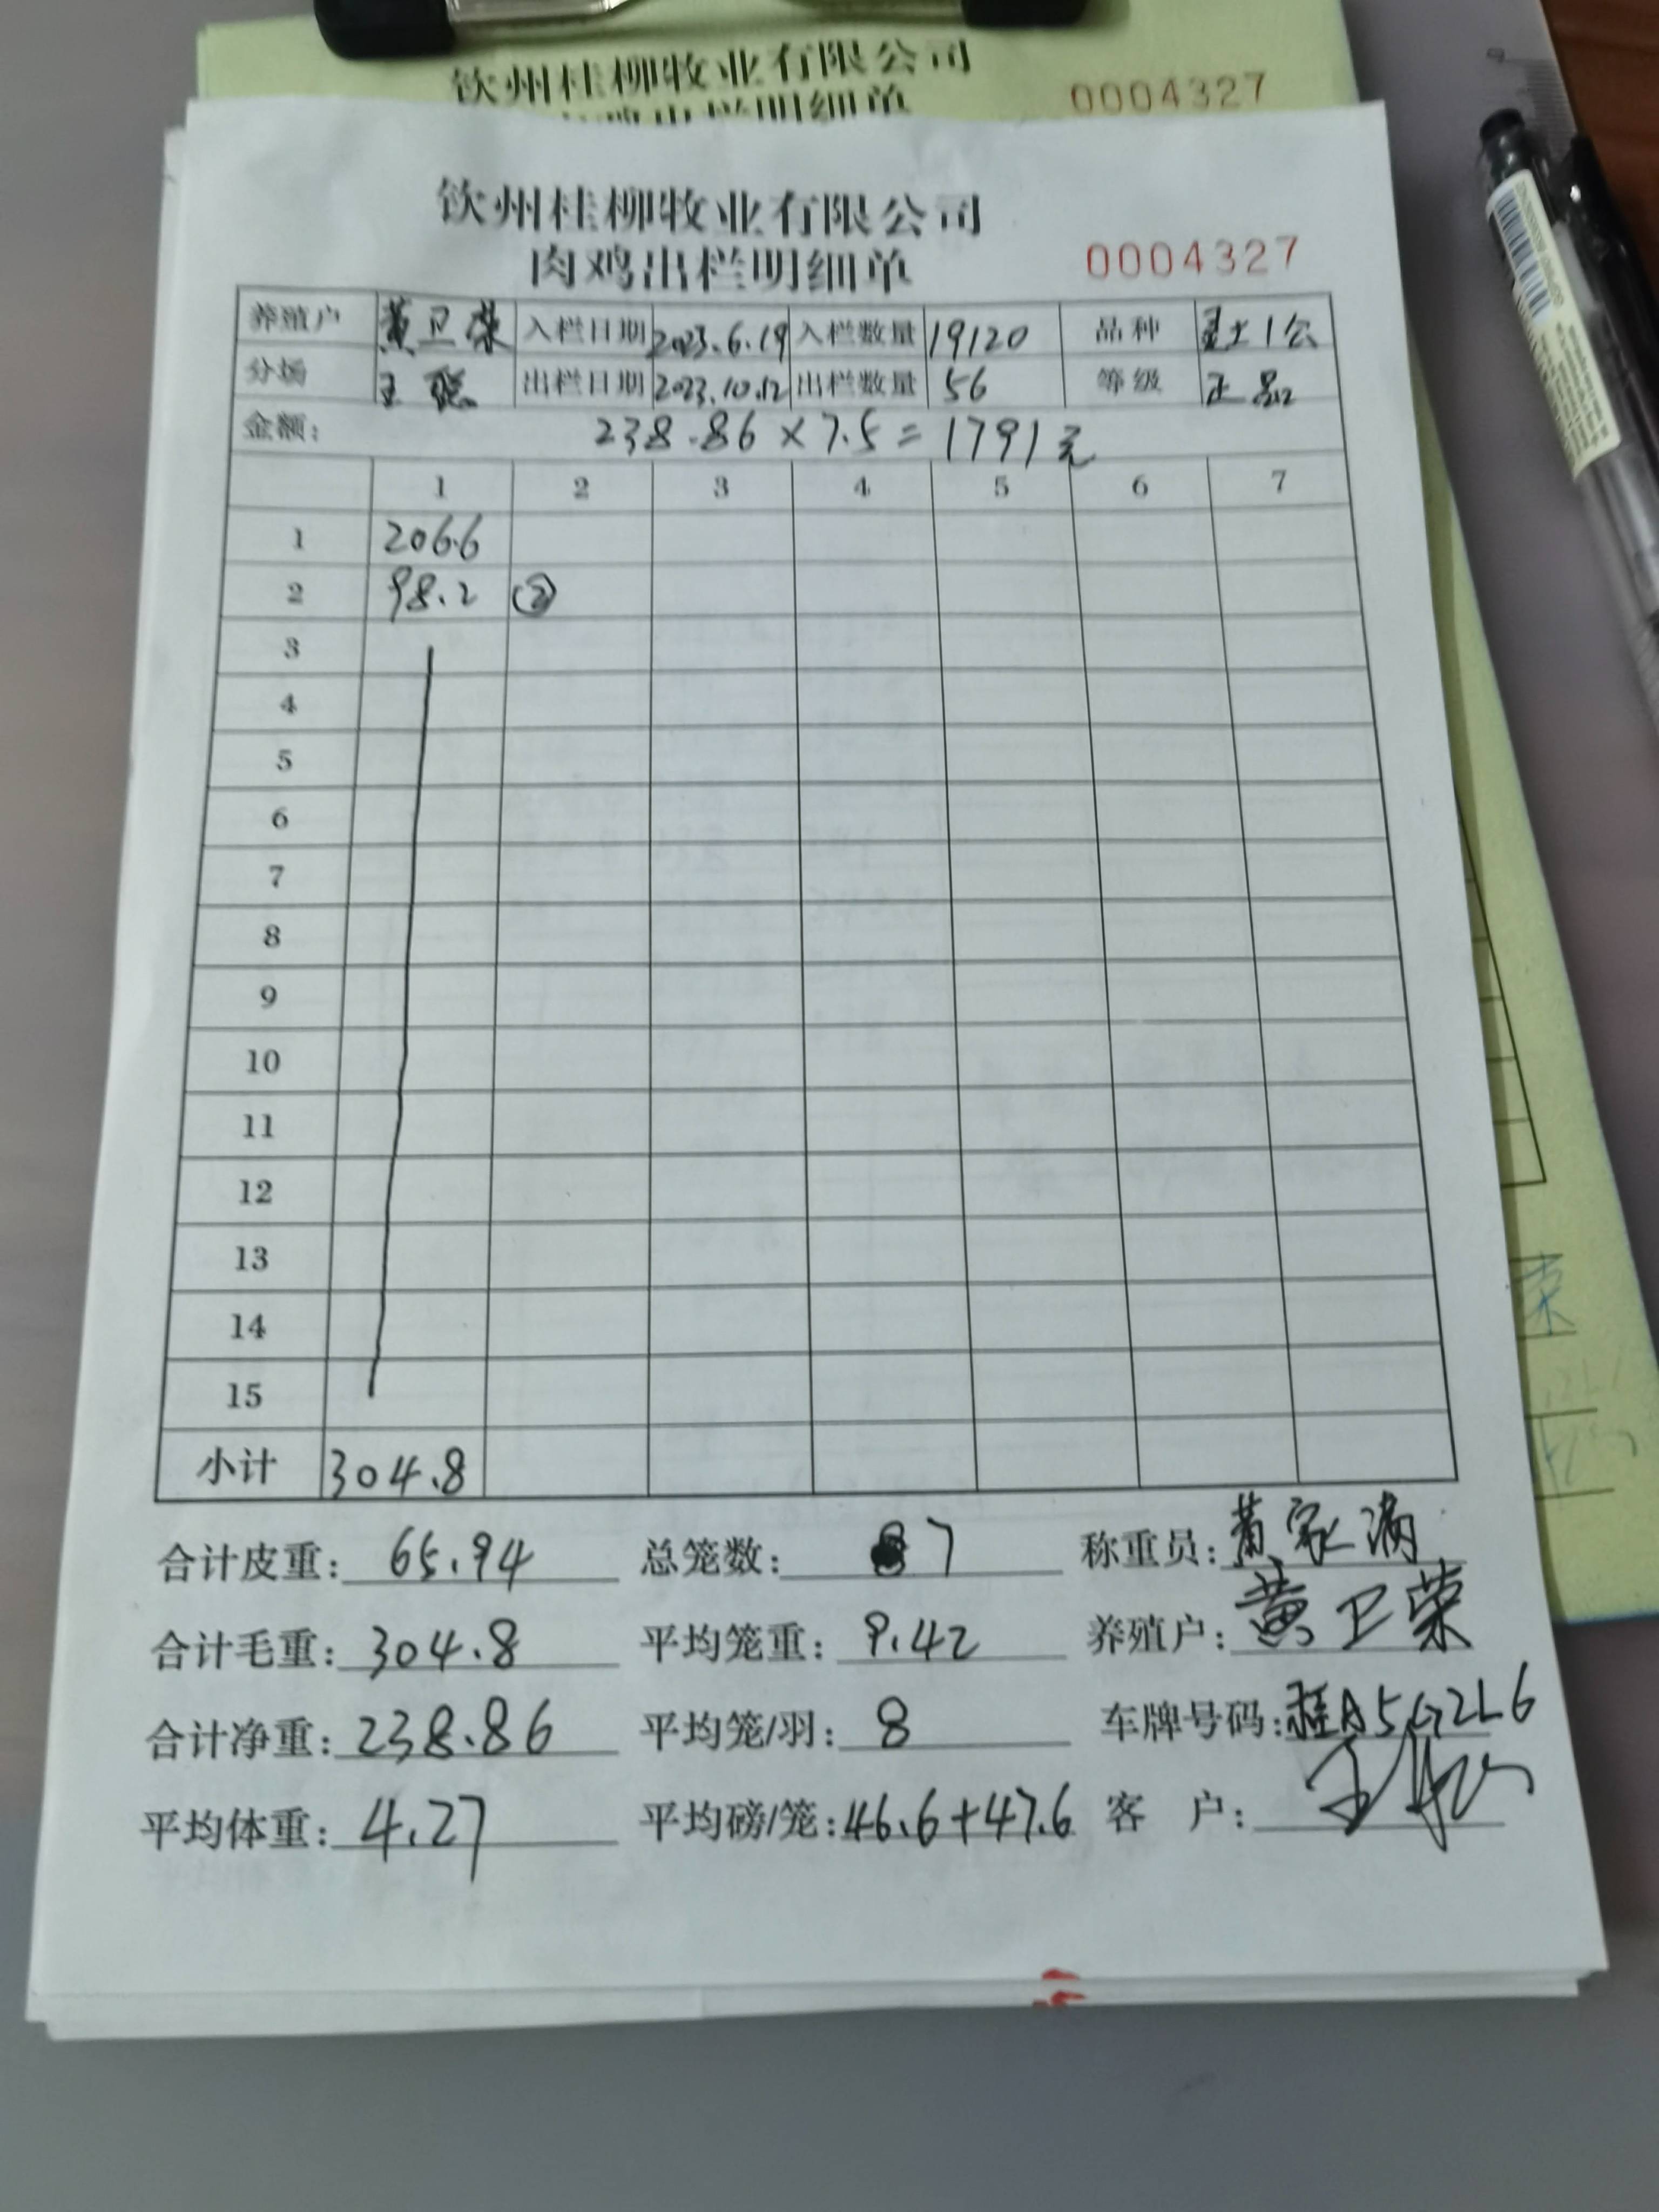 钦州桂柳牧业有限公司
0004327
钦州桂柳牧业有限公司
肉鸡出栏明细单
0004327
养殖户 黄卫荣 入栏日期 2023.6.19 入栏数量 19120 品种 土1公
分场 王聪 出栏日期 2023.10.12 出栏数量 56 等级 正品
金额: 238.86×7.5=1791元
1 2 3 4 5 6 7
1 206.6
2 98.2 ②
3
4
5
6
7
8
9
10
11
12
13
14
15
小计 304.8
合计皮重: 65.94 总笼数: 7 称重员: 黄家满
合计毛重: 304.8 平均笼重: 9.42 养殖户: 黄卫荣
合计净重: 238.86 平均笼/羽: 8 车牌号码: 桂A5G2L6
平均体重: 4.27 平均磅/笼: 46.6+47.6 客户: